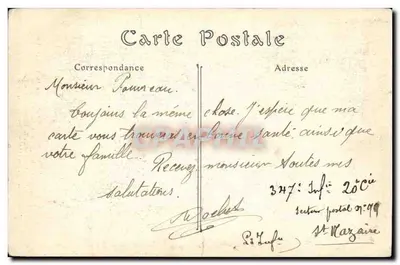 Carte Postale
Correspondance
Adresse
Monsieur
Toujours la même chose. J'espère que ma
carte vous trouvera en bonne santé ainsi que
votre famille. Recevez monsieur toutes mes
salutations.
347e Infie 20e Cie
Secteur postal n°
St Nazaire